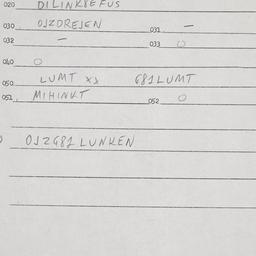 020 DILINK8EFUS
030 OJZDREJEN 031 –
032 – 033 0
040 0
050 LUMT XJ G81LUMT
051 MIHINKT 052 0
OJZG81LUNKEN